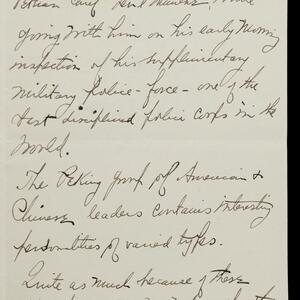 going with him on his early morning
inspection of his supplimentary
military police-force - one of the
best disciplined police corps in the
World.
The Peking group of American &
Chinese leaders contains interesting
personalities of varied types.
Quite as much because of these